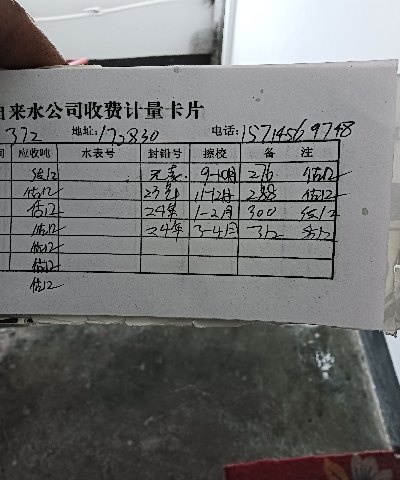 自来水公司收费计量卡片
372 地址: 17-2830 电话: 15714569748
间 应收吨 水表号 封铅号 擦校 备 注
估12 无表. 9-10月 276 估12
估12 23年 11-12月 288 估12
估12 24年 1-2月 300 估12
估12 24年 3-4月 312 估12
估12
估12
估12